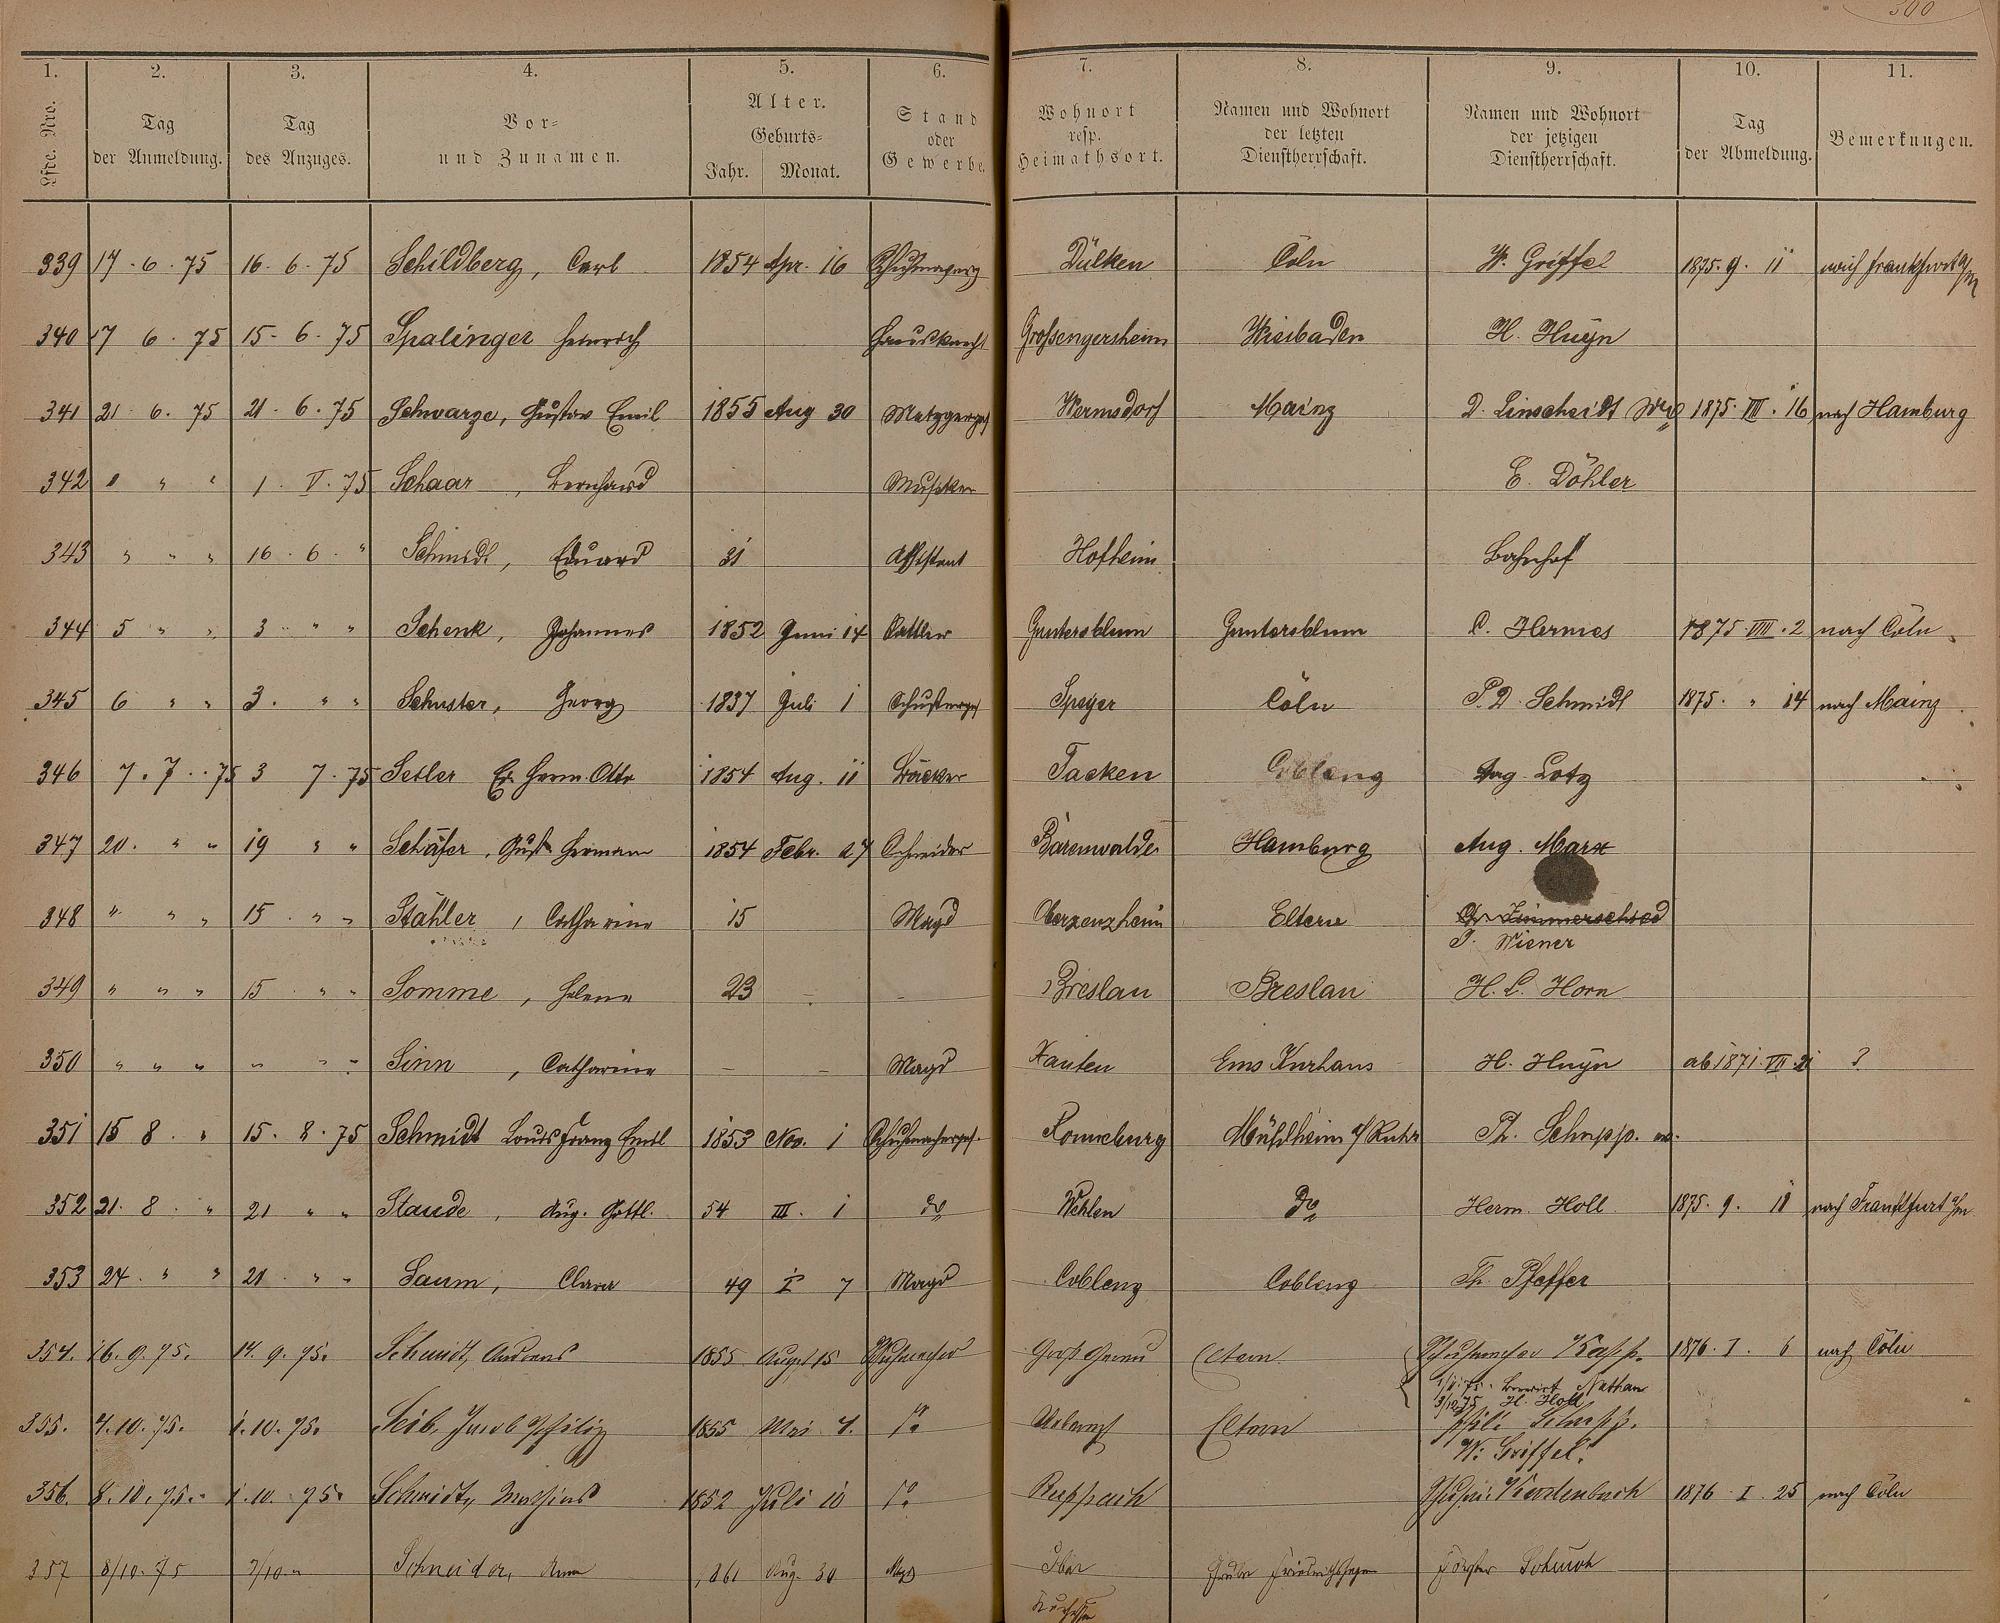 300
1. 2. 3. 4. 5. 6. 7. 8. 9. 10. 11.
Lfde. Nro. Tag der Anmeldung. Tag des Anzuges. Vor- und Zunamen. Alter. Geburts- Jahr. Monat. Stand oder Gewerbe. Wohnort resp. Heimathsort. Namen und Wohnort der letzten Dienstherrschaft. Namen und Wohnort der jetzigen Dienstherrschaft. Tag der Abmeldung. Bemerkungen.
339 17. 6. 75 16. 6. 75 Schildberg, Carl 1854 Apr. 16 Dülken Cöln W. Griffel 1875. 9. 11 nach Frankfurt a/m
340 17 6. 75 15. 6. 75 Spalinger Heinrich Hausknecht Grossengersheim Wiesbaden H. Huyn
341 21. 6. 75 21. 6. 75 Schwarze, Gustav Emil 1855 Aug 30 Metzgerges Wermsdorf Mainz D. Linscheidt Ww 1875. VIII. 16 nach Hamburg
342 " " " 1. V. 75 Schaar, Bernhard Musiker E. Döhler
343 " " " 16. 6. " Schmidt, Eduard 31 Assistent Hofheim Bahnhof
344 5 " " 3 " " Schenk, Johannes 1852 Juni 14 Sattler Guntersblum Guntersblum C. Hermes 1875. VIII. 2 nach Cöln
345 6 " " 3. " " Schuster, Georg 1837 Juli 1 Schusterges Speyer Cöln P. D. Schmidt 1875. " 14 nach Mainz
346 7. 7. 75 3 7. 75 Seiler Er. Herm. Otto 1854 Aug. 11 Bäcker Tacken Coblenz Aug. Lotz
347 20. " " 19 " " Schäfer, Gust. Hermann 1854 Febr. 27 Schneider Bärenwalde Hamburg Aug. Marx
348 " " " 15. " " Stähler, Catharine 15 Magd Oberzeuzheim Eltern Zimmerschied
P. Wiener
349 " " " 15 " " Somme, Helene 23 - - Breslau Breslau H. L. Horn
350 " " " " " " Sinn, Catharine - - Magd Xanten Ems Kurhaus H. Huyn ab 1871. VII. 21 ?
351 15 8. " 15. 8. 75 Schmidt Louis Franz Emil 1853 Nov. 1 Schuhmacherges. Ronneburg Mühlheim a/Ruhr Ph. Schupp.
352 21. 8. " 21 " " Staude, Aug. Gottl. 54 III. 1 do Wehlen Do Herm. Holl 1875. 9. 11 nach Frankfurt a/m
353 24. " " 21. " " Saum, Clara 49 I 7 Magd Coblenz Coblenz Th. Pfeffer
354. 16. 9. 75. 14. 9. 75. Schmidt, Andreas 1855 August 15 Schuhmacher Groß Gerau Eltern Schuhmacher Kapp. 1876. I. 6 nach Cöln
Nathan
3/12 75 H. Holl
355. 4. 10. 75. 1. 10. 75. Seib, Jacob Philipp 1855 Mai 4. do Eltern Phil. Schupp.
W. Griffel.
356. 8. 10. 75. 1. 10. 75. Schmidt, Mathias 1852 Juli 10 do Ruppach 1876. I. 25 nach Cöln
357 8/10. 75 7/10. " Schneider, Anna 1861 Aug. 30 Magd Grube Friedrichssegen Förster